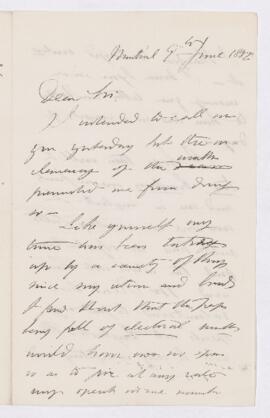 Montreal 9th June 1882
Dear Sir
I intended to call on
you yesterday but the in
clemency of the weather
prevented me from doing
so —
Like yourself my
time has been taken
up by a variety of things
since my return and
I found that the papers
being full of electoral matter
would have no space
so as to give at any rate
my speech in one number